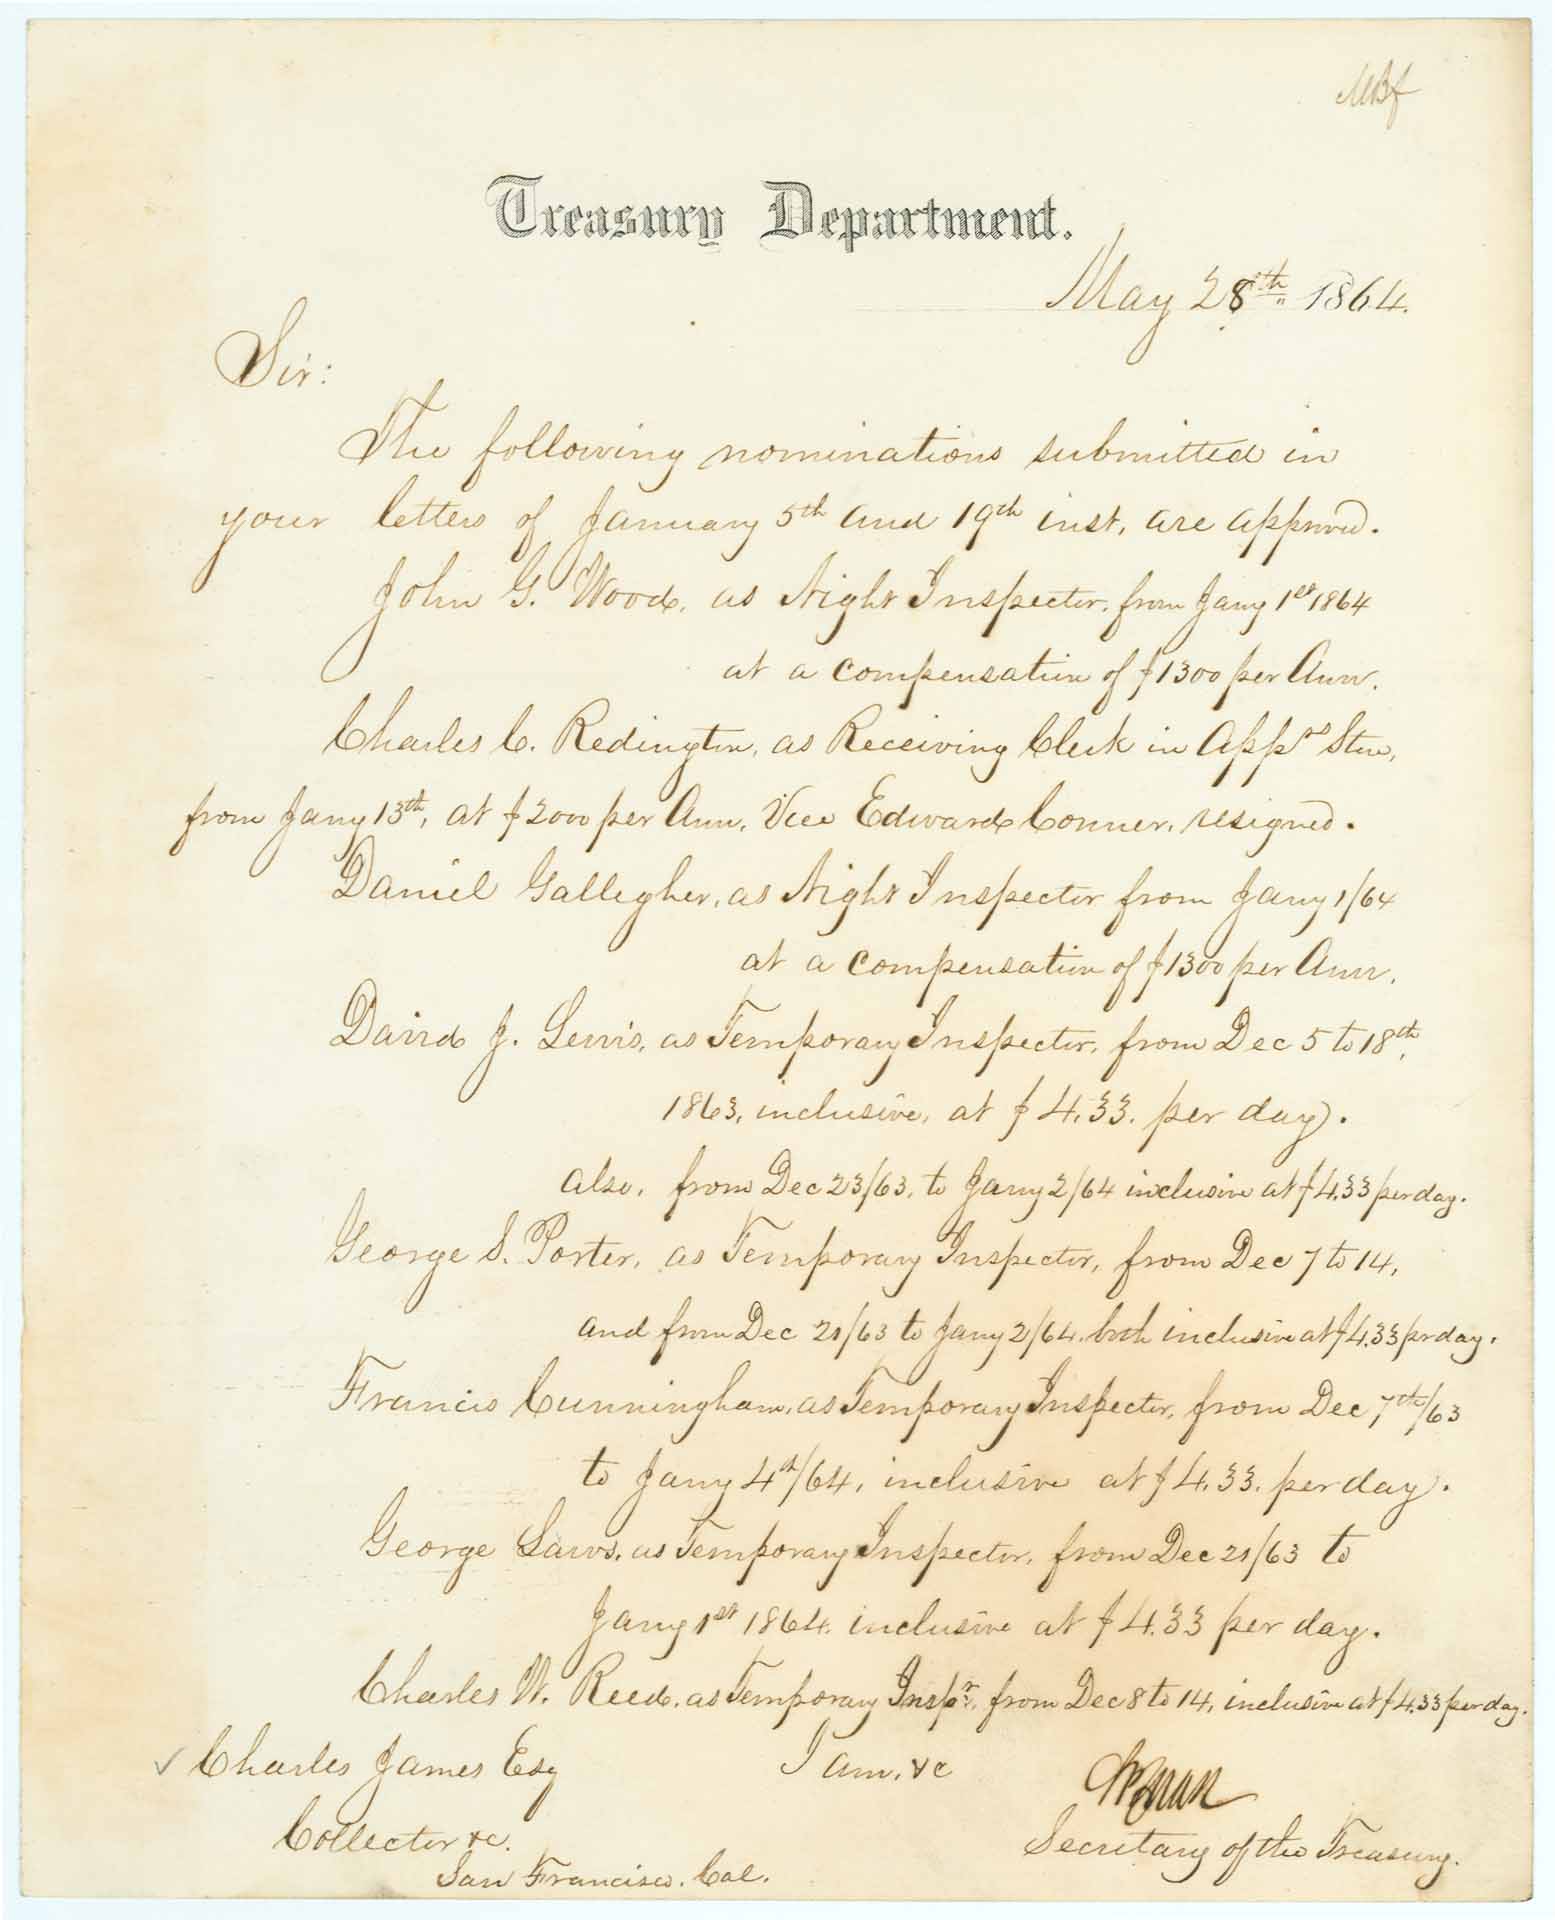 MBf
Treasury Department.
May 28th 1864.
Sir:
The following nominations submitted in
your letters of January 5th and 19th inst, are approved.
John G. Wood, as Night Inspector, from Jany 1st 1864
at a compensation of $1300 per Ann.
Charles C. Redington, as Receiving Clerk in Apprs Store,
from Jany 13th, at $2000 per Ann, Vice Edward Conner, resigned.
Daniel Gallegher, as Night Inspector from Jany 1/64
at a compensation of $1300 per Ann.
David J. Lewis, as Temporary Inspector, from Dec 5 to 18th,
1863, inclusive, at $4.33. per day.
also, from Dec 23/63, to Jany 2/64 inclusive at $4.33 per day.
George S. Porter, as Temporary Inspector, from Dec 7 to 14,
and from Dec 21/63 to Jany 2/64. both inclusive at $4.33 pr day.
Francis Cunningham, as Temporary Inspector, from Dec 7th/63
to Jany 4th/64, inclusive at $4.33. per day.
George Laws, as Temporary Inspector, from Dec 21/63 to
Jany 1st 1864. inclusive at $4.33 per day.
Charles W. Reed, as Temporary Inspr, from Dec 8 to 14, inclusive at $4.33 per day.
I am, &c
Charles James Esq
Collector &c.
San Francisco. Cal.
Secretary of the Treasury.